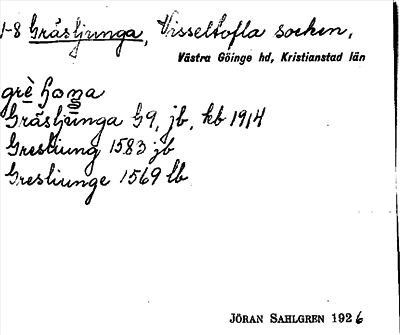 1-8 Gräsljunga, Visseltofla socken,
Västra Göinge hd, Kristianstad län
Gräsljunga G9, jb, kb 1914
Gresliung 1583 jb
Gresliunge 1569 lb
JÖRAN SAHLGREN 1926